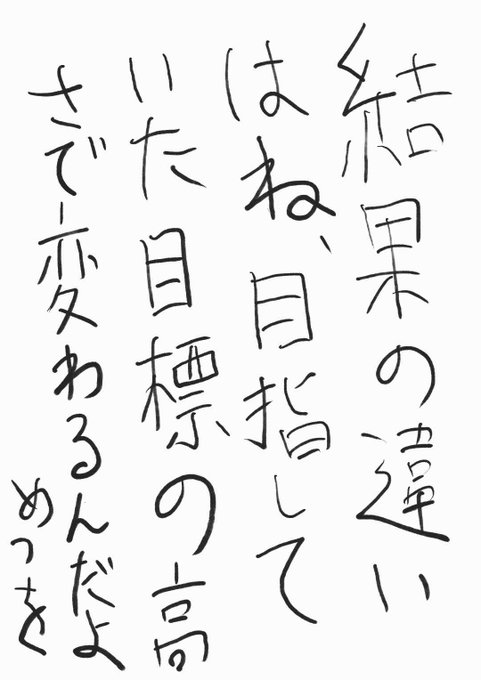 結果の違い
はね、目指して
いた目標の高
さで変わるんだよ
めつを